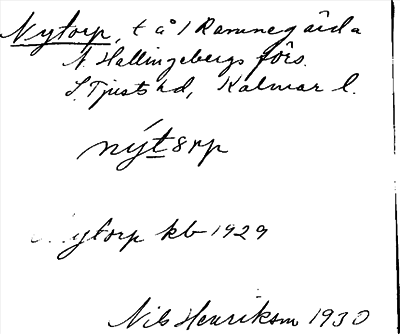 Nytorp, t å 1 Ramnegärda
N. Hallingebergs förs.
S. Tjusts hd, Kalmar l.
nýtorp
Nytorp kb 1929
Nils Henrikson 1930